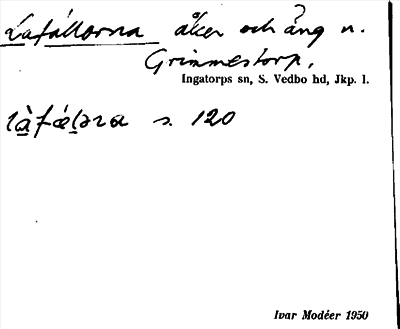 Lafållorna åker och äng n.
Grimmestorp,
Ingatorps sn, S. Vedbo hd, Jkp. l.
s. 120
Ivar Modéer 1950